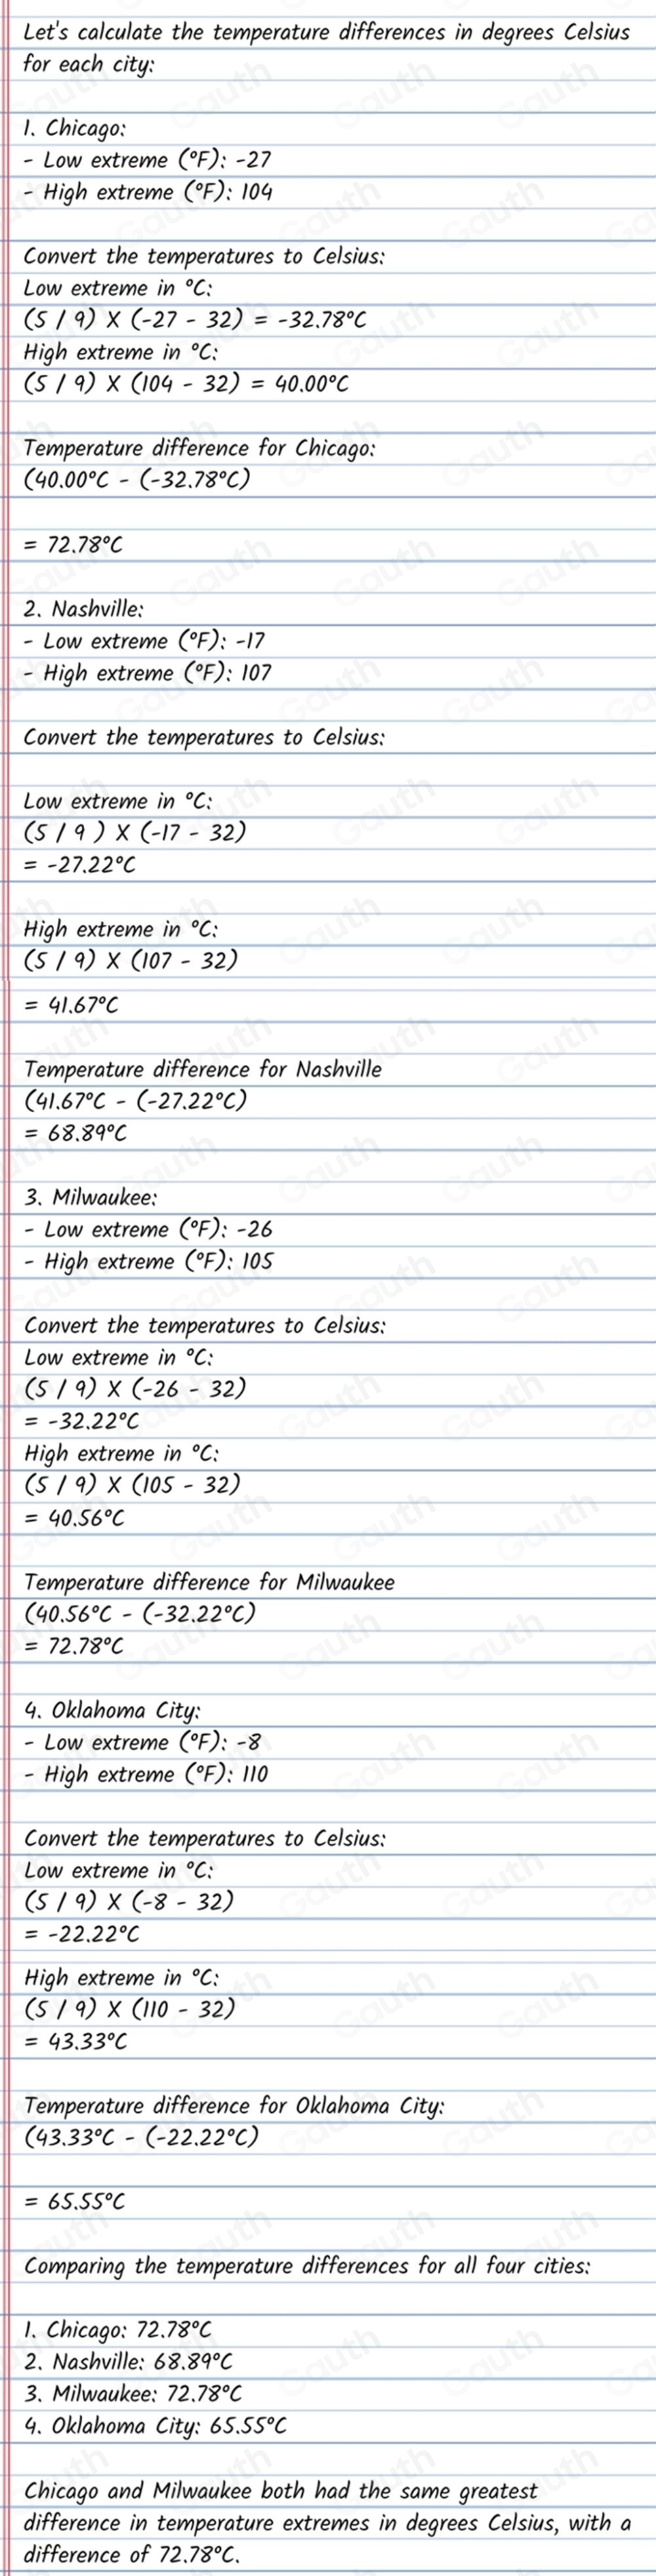 Let's calculate the temperature differences in degrees Celsius
for each city:
1. Chicago:
- Low extreme (°F): -27
- High extreme (°F): 104
Convert the temperatures to Celsius:
Low extreme in °C:
(5 / 9) X (-27 - 32) = -32.78°C
High extreme in °C:
(5 / 9) X (104 - 32) = 40.00°C
Temperature difference for Chicago:
(40.00°C - (-32.78°C)
= 72.78°C
2. Nashville:
- Low extreme (°F): -17
- High extreme (°F): 107
Convert the temperatures to Celsius:
Low extreme in °C:
(5 / 9 ) X (-17 - 32)
= -27.22°C
High extreme in °C:
(5 / 9) X (107 - 32)
= 41.67°C
Temperature difference for Nashville
(41.67°C - (-27.22°C)
= 68.89°C
3. Milwaukee:
- Low extreme (°F): -26
- High extreme (°F): 105
Convert the temperatures to Celsius:
Low extreme in °C:
(5 / 9) X (-26 - 32)
= -32.22°C
High extreme in °C:
(5 / 9) X (105 - 32)
= 40.56°C
Temperature difference for Milwaukee
(40.56°C - (-32.22°C)
= 72.78°C
4. Oklahoma City:
- Low extreme (°F): -8
- High extreme (°F): 110
Convert the temperatures to Celsius:
Low extreme in °C:
(5 / 9) X (-8 - 32)
= -22.22°C
High extreme in °C:
(5 / 9) X (110 - 32)
= 43.33°C
Temperature difference for Oklahoma City:
(43.33°C - (-22.22°C)
= 65.55°C
Comparing the temperature differences for all four cities:
1. Chicago: 72.78°C
2. Nashville: 68.89°C
3. Milwaukee: 72.78°C
4. Oklahoma City: 65.55°C
Chicago and Milwaukee both had the same greatest
difference in temperature extremes in degrees Celsius, with a
difference of 72.78°C.